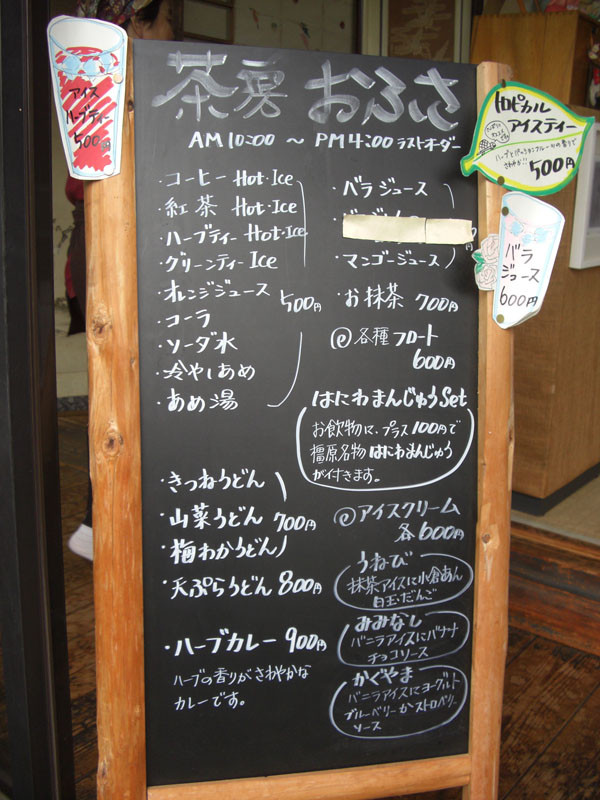 茶房 おふさ
AM 10:00 ～ PM 4:00 ラストオーダー
・コーヒー Hot・Ice
・紅茶 Hot・Ice
・ハーブティー Hot・Ice
・グリーンティー Ice
・オレンジジュース
・コーラ
・ソーダ水
・冷やしあめ
・あめ湯
500円
・きつねうどん
・山菜うどん 700円
・梅わかうどん
・天ぷらうどん 800円
・ハーブカレー 900円
ハーブの香りがさわやかな
カレーです。
・バラジュース
・マンゴージュース
・お抹茶 700円
@各種フロート
600円
はにわまんじゅうSet
お飲物に、プラス100円で
橿原名物はにわまんじゅう
が付きます。
@アイスクリーム
各600円
うねび
抹茶アイスに小倉あん
白玉・だんご
みみなし
バニラアイスにバナナ
チョコソース
かぐやま
バニラアイスにヨーグルト
ブルーベリーかストロベリー
ソース
アイス
ハーブティー
500円
トロピカル
アイスティー
ハーブとパッションフルーツの香りで
さわやか!!
500円
バラ
ジュース
600円